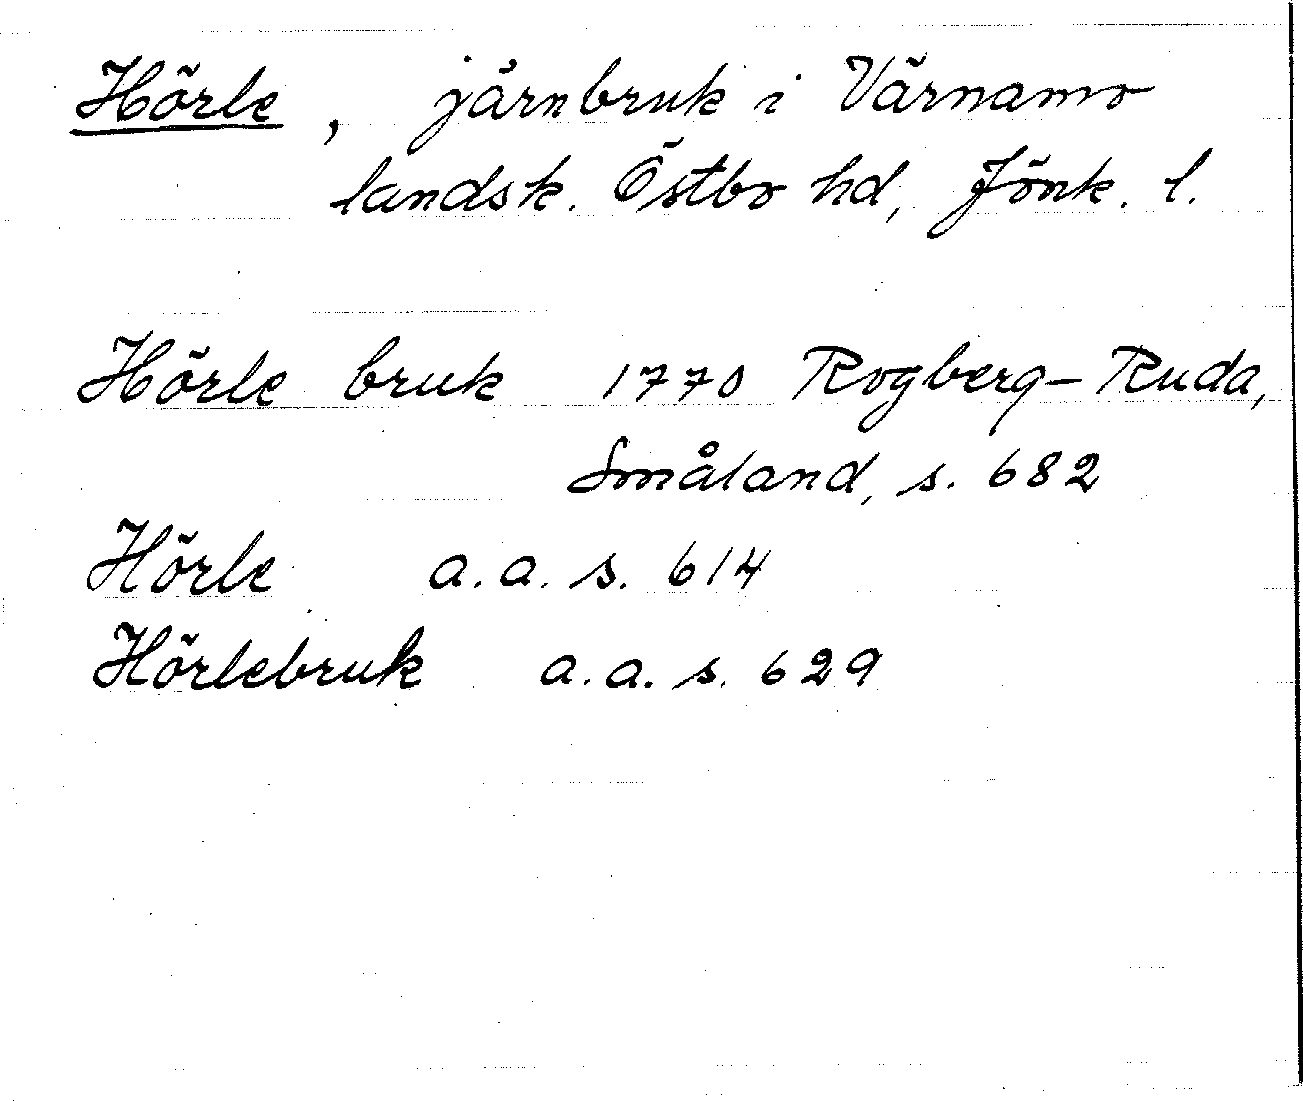 Hörle, järnbruk i Värnamo
landsk. Östbo hd, Jönk. l.
Hörle bruk 1770 Rogberg-Ruda,
Småland, s. 682
Hörle a.a. s. 614
Hörlebruk a.a. s. 629